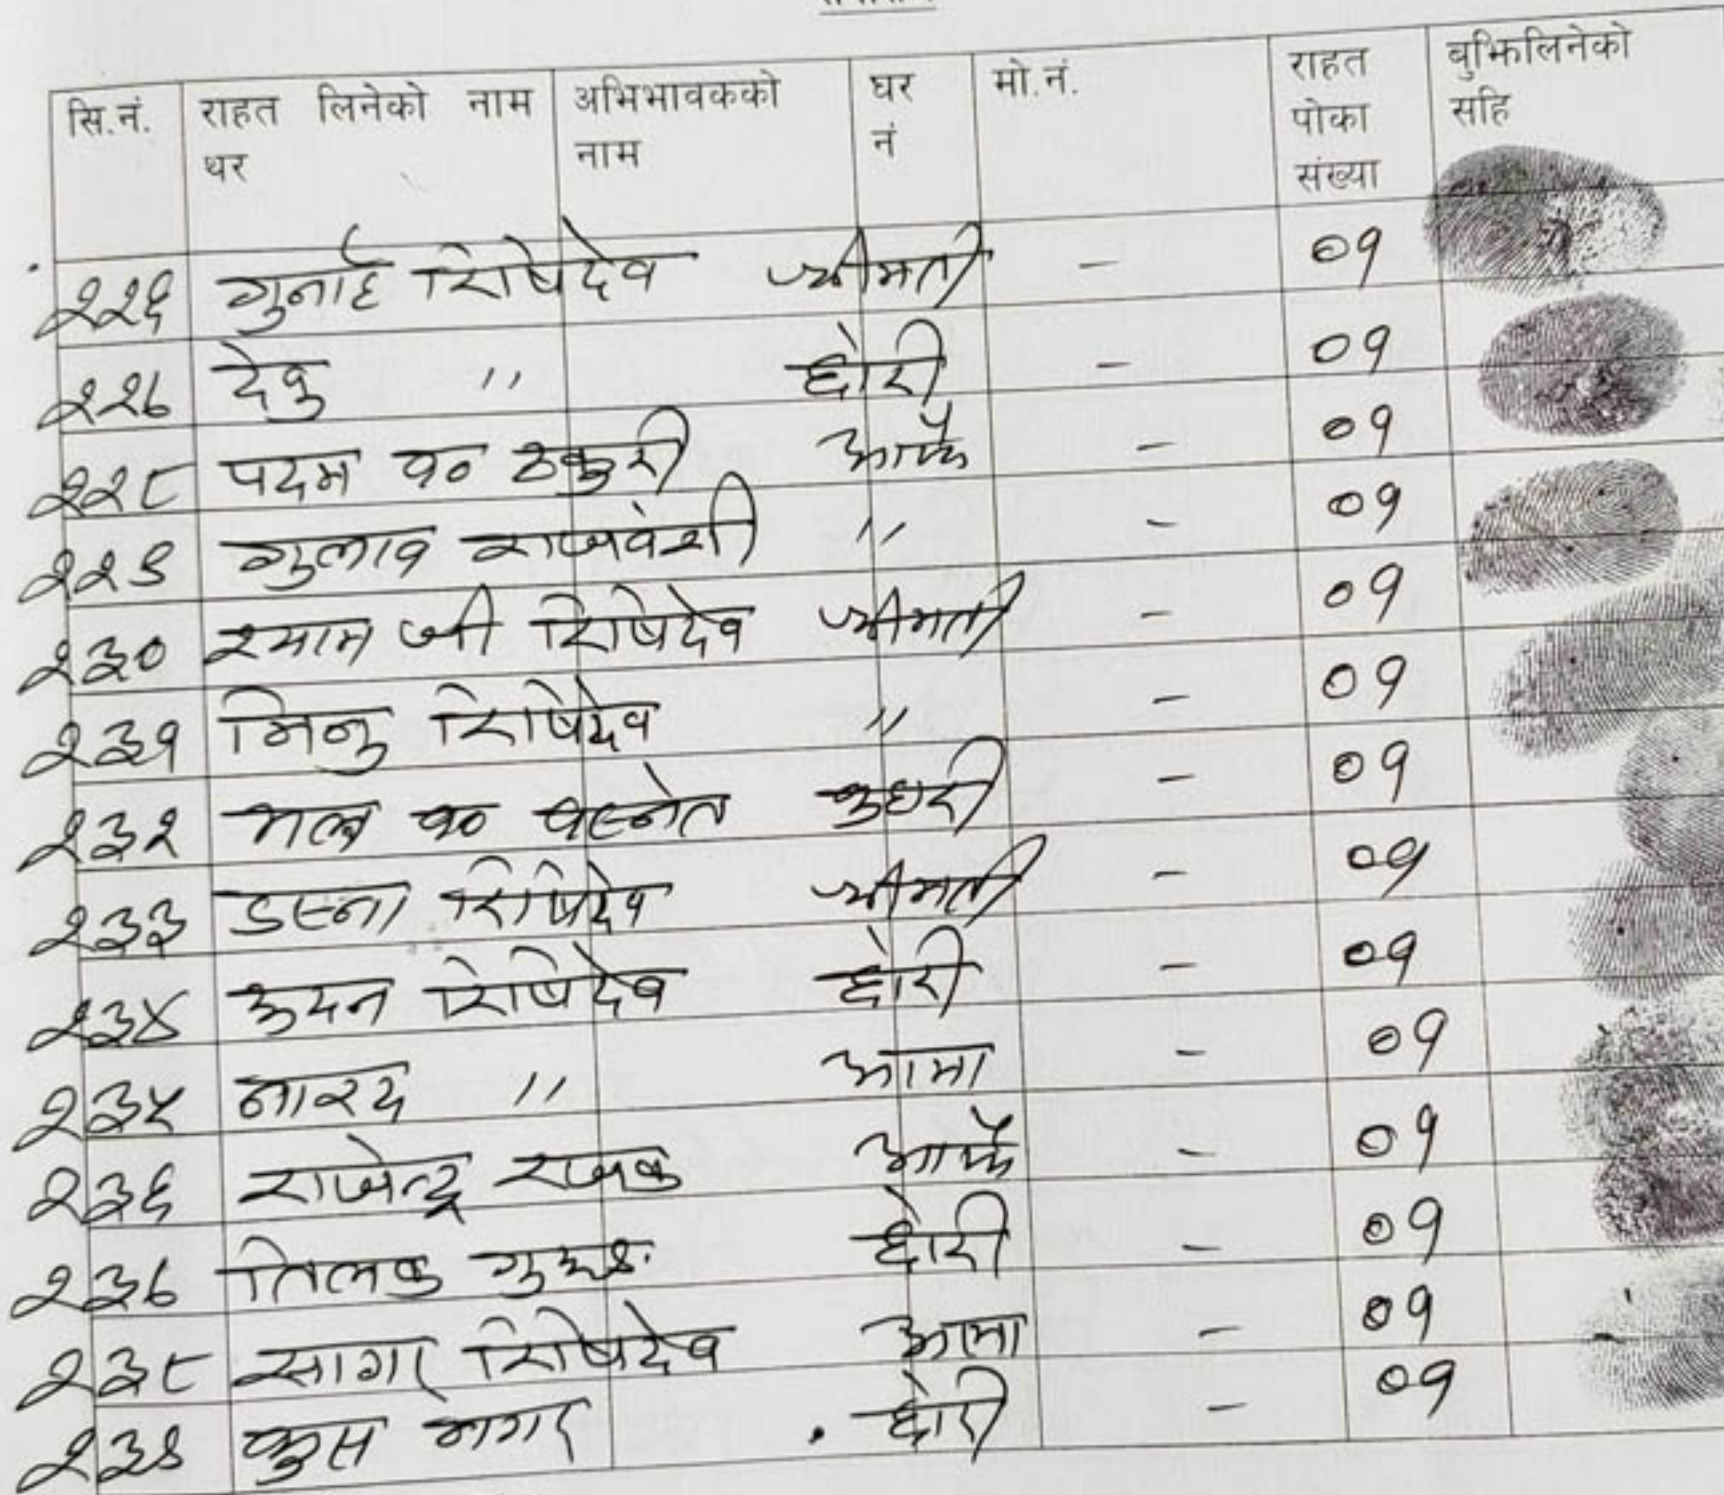 सि.नं. राहत लिनेको नाम थर अभिभावकको नाम घर नं मो.नं. राहत पोका संख्या बुझिलिनेको सहि
२२६ गुनाई रिषिदेव श्रीमती - ०१
२२७ देवु " छोरी - ०१
२२८ पदम ब० ठकुरी आफै - ०१
२२९ गुलाव राजवंशी " - ०१
२३० श्याम जी रिषिदेव श्रीमती - ०१
२३१ मिनु रिषिदेव " - ०१
२३२ मल्ल ब० बस्नेत - ०१
२३३ डस्ना रिषिदेव श्रीमती - ०१
२३४ कुदन रिषिदेव छोरी - ०१
२३५ नारद " आमा - ०१
२३६ राजेन्द्र रजक आफै - ०१
२३७ तिलक छोरी - ०१
२३८ सागर रिषिदेव आमा - ०१
२३९ कुस मगर छोरी - ०१